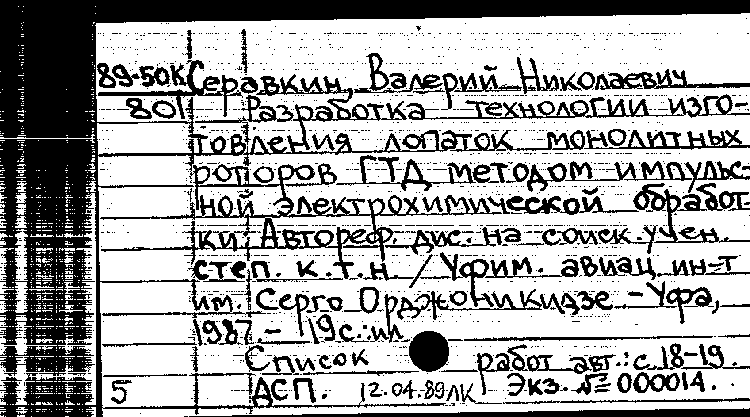 89-50К Серавкин, Валерий Николаевич
801 Разработка технологии изго-
товления лопаток монолитных
роторов ГТД методом импульс-
ной электрохимической обработ-
ки: Автореф. дис. на соиск. учен.
степ. к.т.н. / Уфим. авиац. ин-т
им. Серго Орджоникидзе. - Уфа,
1987. - 19 с.: ил
Список работ авт.: с. 18-19.
5 ДСП. 12.04.89 ЛК Экз. № 000014.